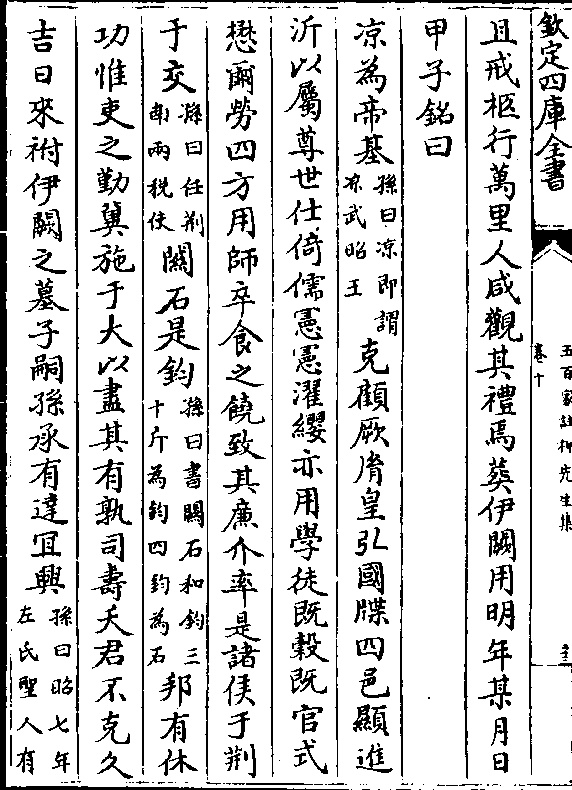 欽定四庫全書
五百家註柳先生集
卷十
且戒柩行萬里人咸觀其禮焉葬伊闕用明年某月日
甲子銘曰
凉為帝基孫曰凉即謂凉武昭王克顧厥胄皇引國牒四邑顯進
沂以屬尊世仕倚儒憲憲濯纓亦用學徒既穀既官式
懋爾勞四方用師卒食之饒致其廉介率是諸侯于荆
于交孫曰任荆南兩税使關石是鈞孫曰書關石和鈞三十斤為鈞四鈞為石邦有休
功惟吏之勤冀施于大以盡其有孰司壽夭君不克久
吉日來祔伊闕之墓子嗣孫承有達冝興孫曰昭七年左氏聖人有